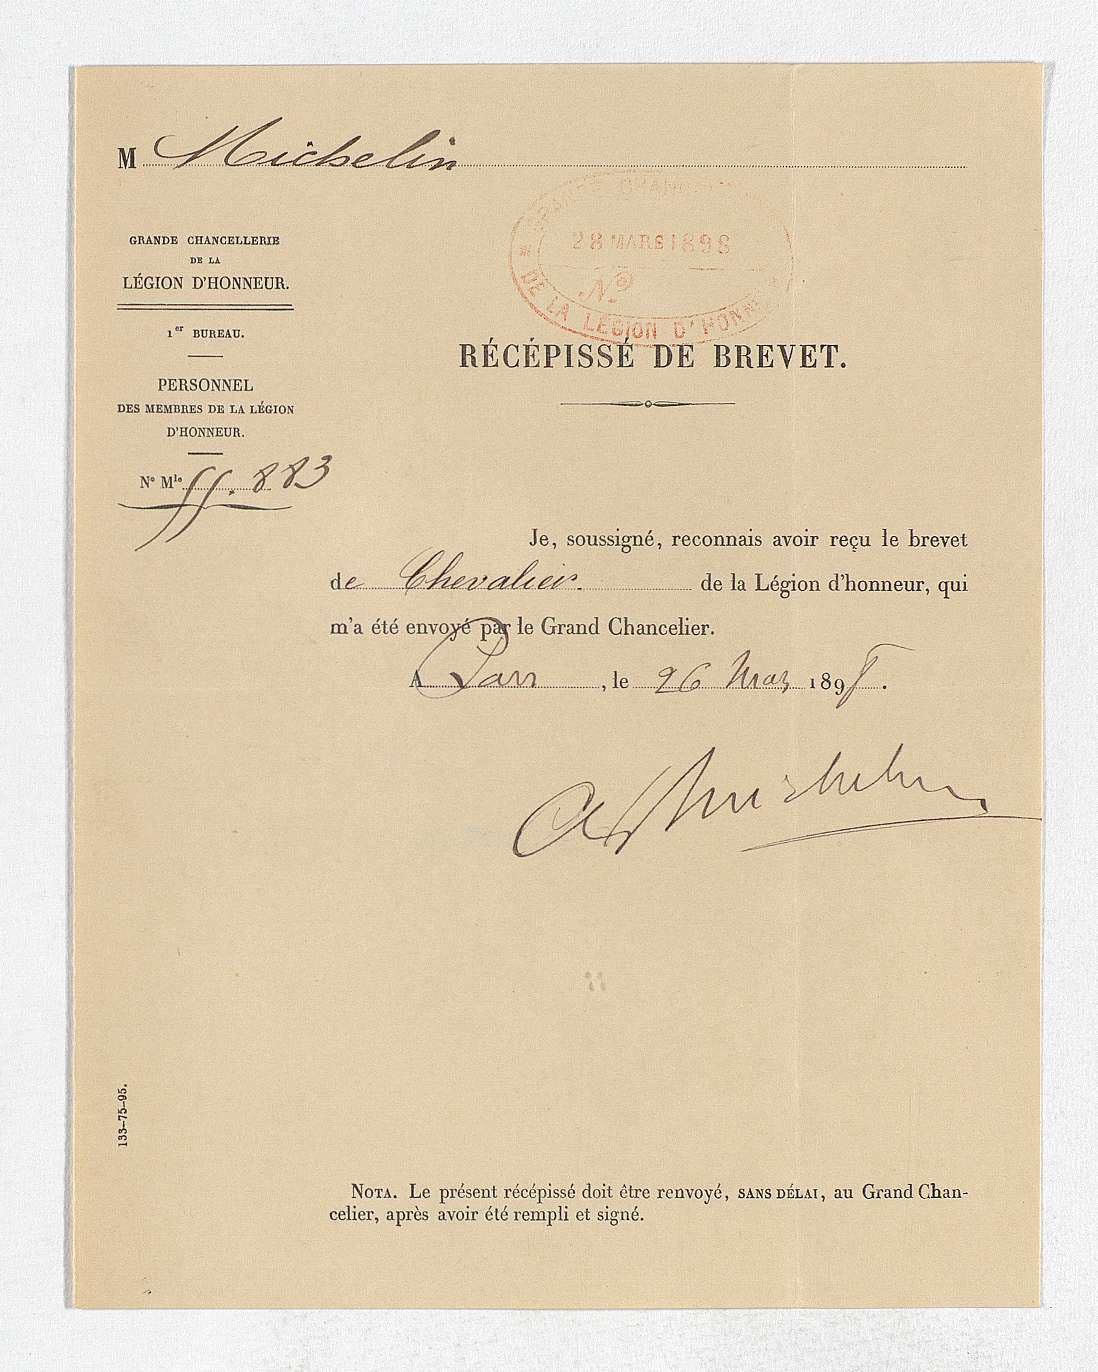 M Michelin
GRANDE CHANCELLERIE
DE LA
LÉGION D'HONNEUR.
1er BUREAU.
PERSONNEL
DES MEMBRES DE LA LÉGION
D'HONNEUR.
No Mle 55.883
GRANDE CHANCE
28 MARS 1898
No
DE LA LÉGION D'HONNE
RÉCÉPISSÉ DE BREVET.
Je, soussigné, reconnais avoir reçu le brevet
de Chevalier. de la Légion d'honneur, qui
m'a été envoyé par le Grand Chancelier.
A Paris, le 26 Mars 1898.
Michelin
133-75-95.
NOTA. Le présent récépissé doit être renvoyé, SANS DÉLAI, au Grand Chan-
celier, après avoir été rempli et signé.